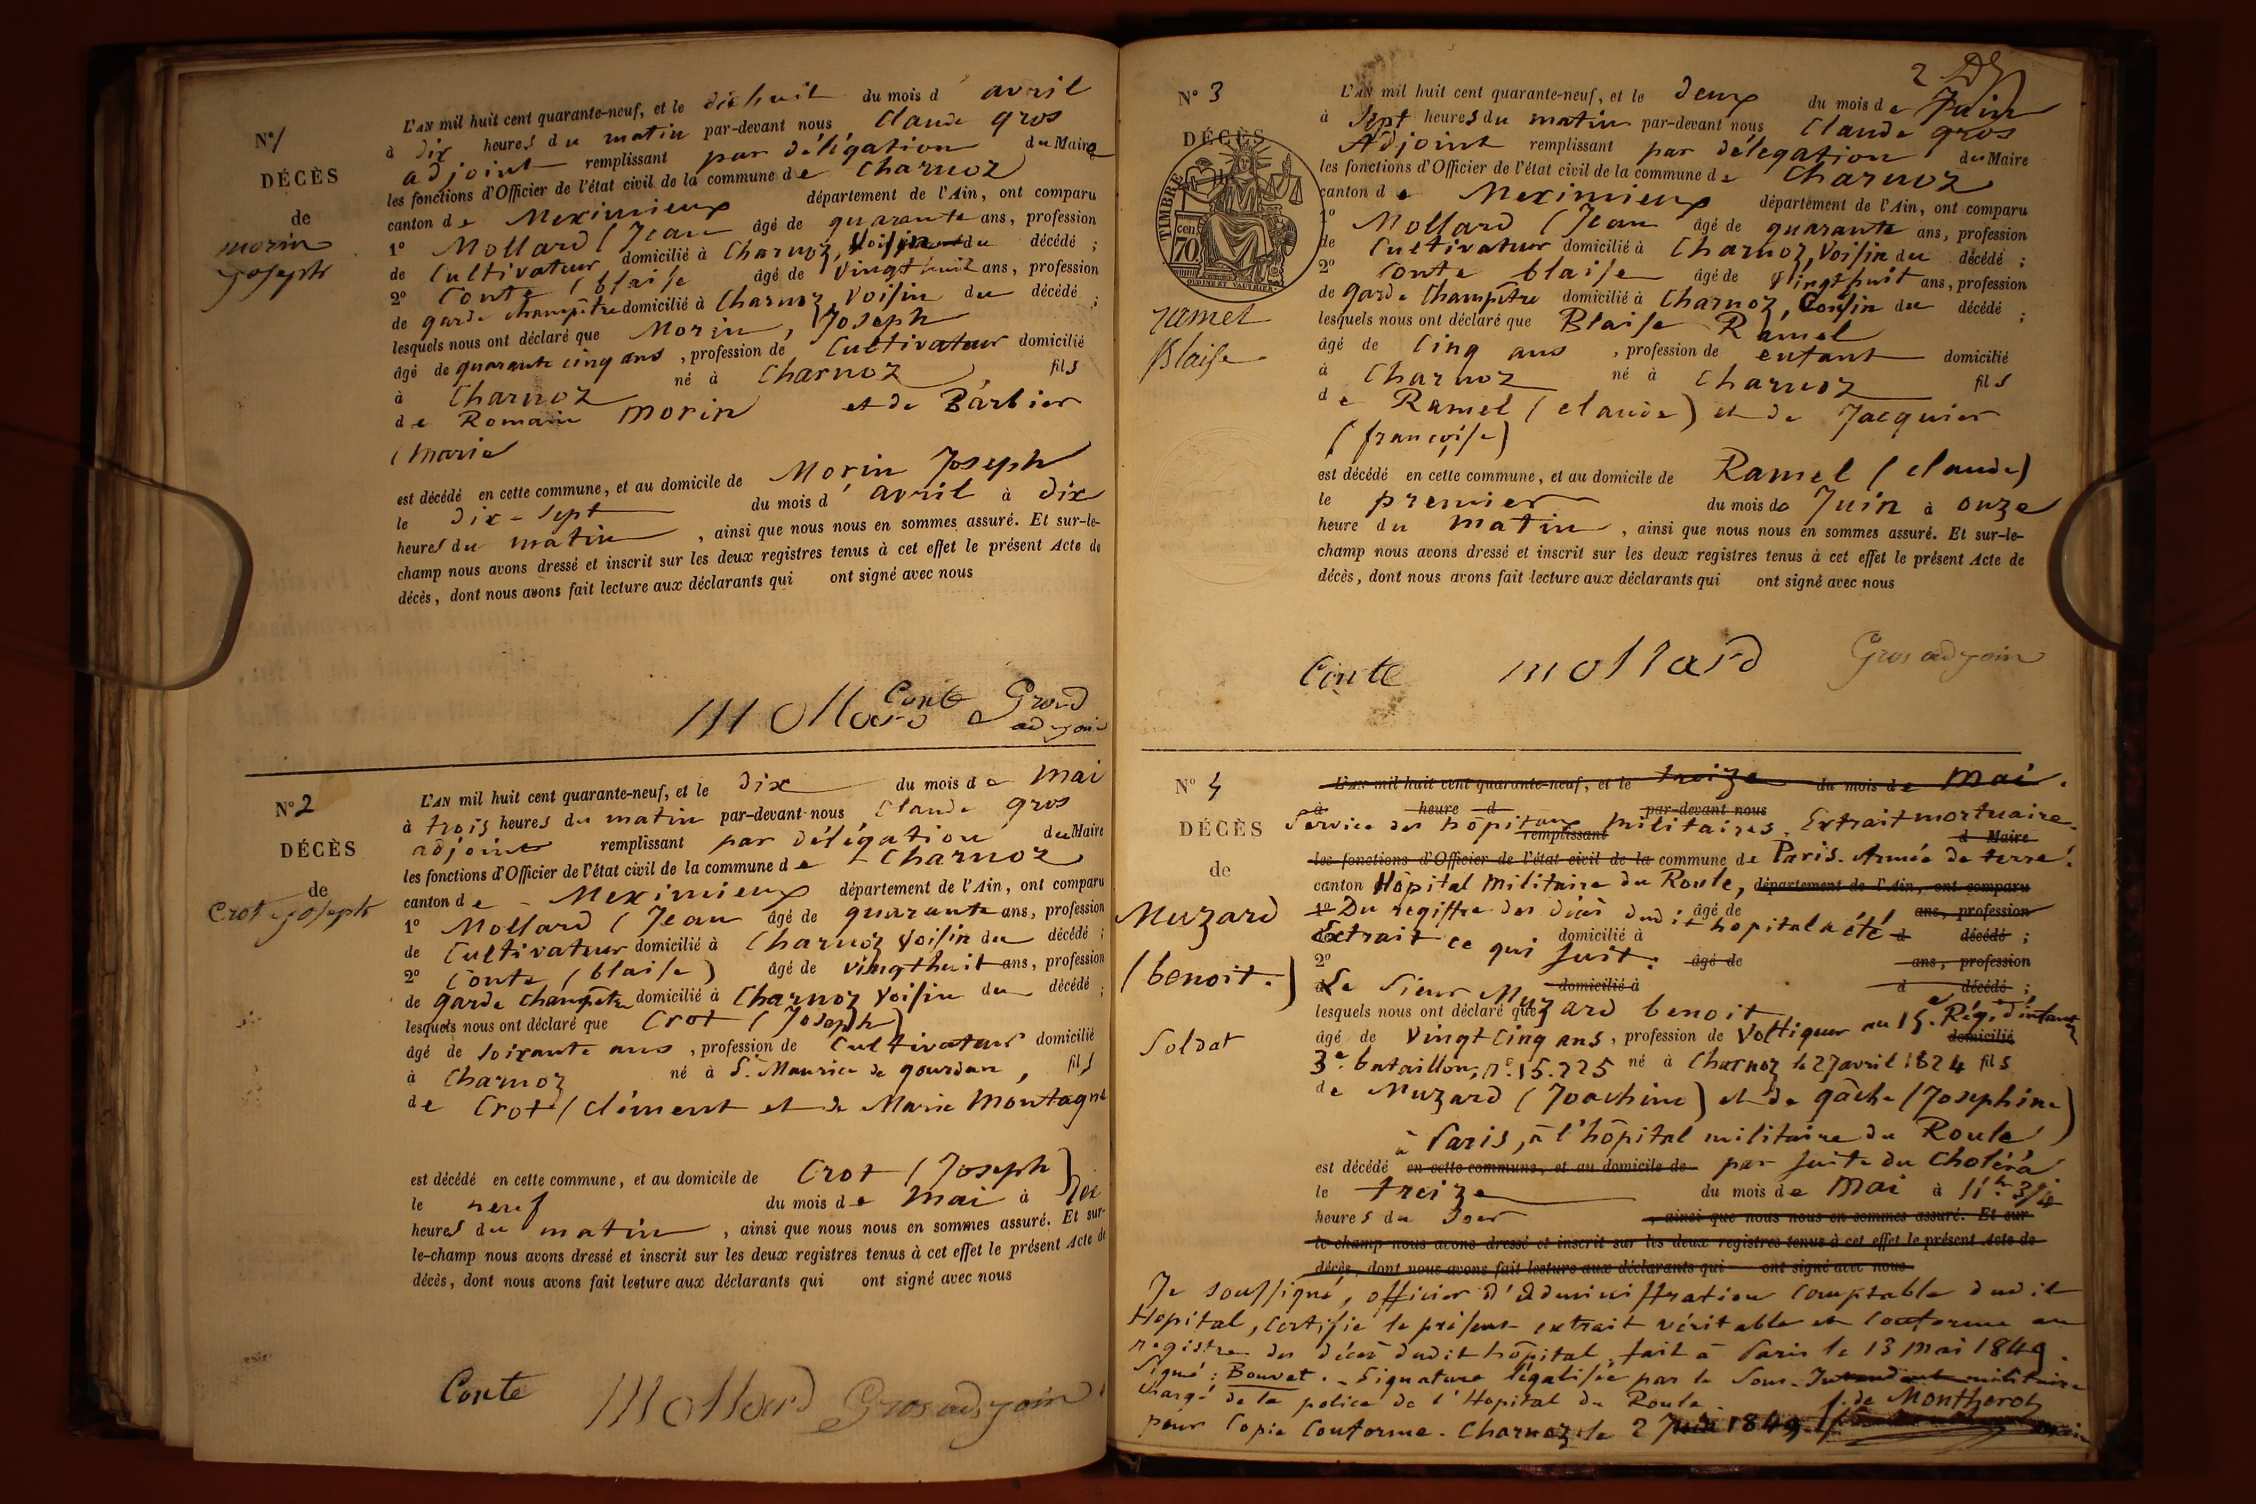 N° 1
DÉCÈS
de
morin
joseph
L'AN mil huit cent quarante-neuf, et le dixhuit du mois d' avril
à dix heures du matin par-devant nous Claude gros
adjoint remplissant par délégation du Maire
les fonctions d'Officier de l'état civil de la commune de Charnoz
canton de Meximieux département de l'Ain, ont comparu
1° Mollard (Jean âgé de quarante ans, profession
de Cultivateur domicilié à Charnoz, Voisin du décédé ;
2° Conte (blaise âgé de vingt huit ans, profession
de garde champêtre domicilié à Charnoz, Voisin du décédé ;
lesquels nous ont déclaré que Morin, Joseph
âgé de quarante cinq ans, profession de Cultivateur domicilié
à Charnoz né à Charnoz fils
de Romain morin et de Barbier
(marie
est décédé en cette commune, et au domicile de Morin Joseph
le dix-sept du mois d' avril à dix
heures du matin, ainsi que nous nous en sommes assuré. Et sur-le-
champ nous avons dressé et inscrit sur les deux registres tenus à cet effet le présent Acte de
décès, dont nous avons fait lecture aux déclarants qui ont signé avec nous
Mollard Conte Gros
adjoin
N° 2
DÉCÈS
de
Crot joseph
L'AN mil huit cent quarante-neuf, et le dix du mois de Mai
à trois heures du matin par-devant nous Claude gros
adjoint remplissant par délégation du Maire
les fonctions d'Officier de l'état civil de la commune de Charnoz
canton de Meximieux département de l'Ain, ont comparu
1° Mollard (Jean âgé de quarante ans, profession
de Cultivateur domicilié à Charnoz Voisin du décédé ;
2° Conte (blaise) âgé de vingthuit ans, profession
de garde Champêtre domicilié à Charnoz Voisin du décédé ;
lesquels nous ont déclaré que Crot (Joseph)
âgé de soixante ans, profession de Cultivateur domicilié
à Charnoz né à St. Maurice de gourdan, fils
de Crot (Clément et de Marie Montagne
est décédé en cette commune, et au domicile de Crot (Joseph)
le neuf du mois de Mai à dix
heures du matin, ainsi que nous nous en sommes assuré. Et sur-
le-champ nous avons dressé et inscrit sur les deux registres tenus à cet effet le présent Acte de
décès, dont nous avons fait lecture aux déclarants qui ont signé avec nous
Conte Mollard Gros adjoin
2
N° 3
DÉCÈS
TIMBRE
70 cen
ramel
Blaise
L'AN mil huit cent quarante-neuf, et le deux du mois de Juin
à Sept heures du matin par-devant nous Claude gros
Adjoint remplissant par délégation du Maire
les fonctions d'Officier de l'état civil de la commune de Charnoz
canton de Meximieux département de l'Ain, ont comparu
1° Mollard (Jean âgé de quarante ans, profession
de Cultivateur domicilié à Charnoz, Voisin du décédé ;
2° Conte blaise âgé de vingthuit ans, profession
de garde Champêtre domicilié à Charnoz, Cousin du décédé ;
lesquels nous ont déclaré que Blaise Ramel
âgé de Cinq ans, profession de enfant domicilié
à Charnoz né à Charnoz fils
de Ramel (claude) et de Jacquier
(françoise)
est décédé en cette commune, et au domicile de Ramel (claude)
le premier du mois de Juin à onze
heure du matin, ainsi que nous nous en sommes assuré. Et sur-le-
champ nous avons dressé et inscrit sur les deux registres tenus à cet effet le présent Acte de
décès, dont nous avons fait lecture aux déclarants qui ont signé avec nous
Conte Mollard Gros adjoin
N° 4
DÉCÈS
de
Muzard
(benoit.)
Soldat
L'AN mil huit cent quarante-neuf, et le treize du mois de Mai.
à heure d par-devant nous
Service des hôpitaux militaires. Extrait mortuaire.
remplissant d Maire
les fonctions d'Officier de l'état civil de la commune de Paris. Armée de terre.
canton Hôpital Militaire du Roule, département de l'Ain, ont comparu
1° Du registre des décès dudit hopital a été âgé de ans, profession
Extrait ce qui suit : domicilié à d décédé ;
2° âgé de ans, profession
Le Sieur Muzard benoit domicilié à d décédé ;
lesquels nous ont déclaré que
âgé de Vingt Cinq ans, profession de Voltigeur au 15e Régt d'infanterie domicilié
3e bataillon, n° 15.225 né à Charnoz le 27 avril 1824 fils
de Muzard (Joachim) et de gâche (Josephine)
à Paris, à l'hôpital militaire du Roule
est décédé en cette commune, et au domicile de par suite du Choléra
le treize du mois de Mai à 11h. 3/4
heures du Soir, ainsi que nous nous en sommes assuré. Et sur
le-champ nous avons dressé et inscrit sur les deux registres tenus à cet effet le présent Acte de
décès, dont nous avons fait lecture aux déclarants qui ont signé avec nous
Je soussigné, officier d'Administration Comptable dudit
Hopital, Certifie le présent extrait véritable et Conforme au
registre des décès dudit hôpital, fait à Paris le 13 Mai 1849.
Signé : Bouvet. - Signature légalisée par le Sous-Intendant militaire
chargé de la police de l'Hopital du Roule. f. de Montherot
pour Copie Conforme. Charnoz le 2 Juin 1849.